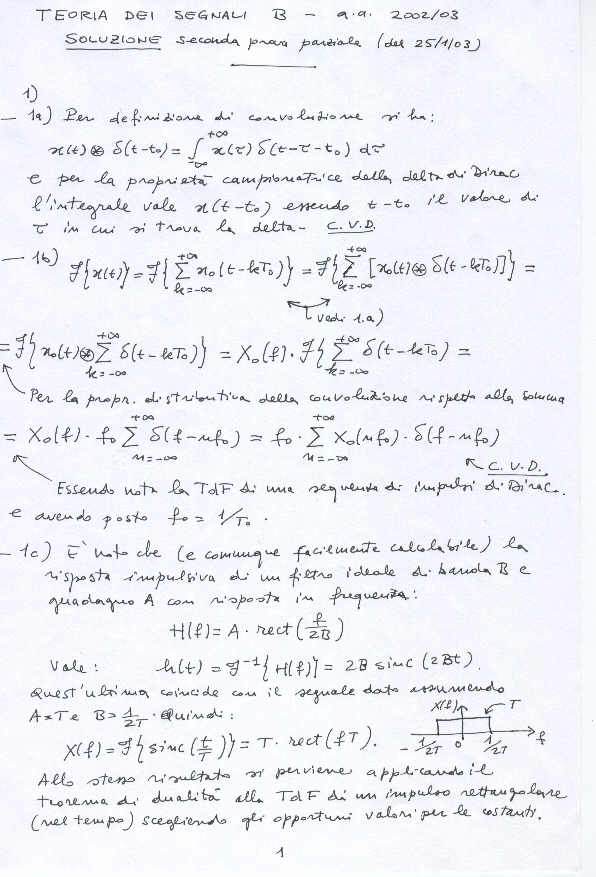 TEORIA DEI SEGNALI B - a.a. 2002/03
SOLUZIONE seconda prova parziale (del 25/1/03)
1)
- 1a) Per definizione di convoluzione si ha:
x(t) ⊗ δ(t-t₀) = ∫_{-∞}^{+∞} x(τ) δ(t-τ-t₀) dτ
e per la proprietà campionatrice della delta di Dirac
l'integrale vale x(t-t₀) essendo t-t₀ il valore di
τ in cui si trova la delta - C.V.D.
- 1b) ℱ{x(t)} = ℱ{∑_{k=-∞}^{+∞} x₀(t-kT₀)} = ℱ{∑_{k=-∞}^{+∞} [x₀(t) ⊗ δ(t-kT₀)]} =
(vedi 1.a)
= ℱ{x₀(t) ⊗ ∑_{k=-∞}^{+∞} δ(t-kT₀)} = X₀(f) · ℱ{∑_{k=-∞}^{+∞} δ(t-kT₀) =
Per la propr. distributiva della convoluzione rispetto alla somma
= X₀(f) · f₀ ∑_{n=-∞}^{+∞} δ(f-nf₀) = f₀ · ∑_{n=-∞}^{+∞} X₀(nf₀) · δ(f-nf₀)
C.V.D.
Essendo nota la TdF di una sequenza di impulsi di Dirac.
e avendo posto f₀ = 1/T₀ .
- 1c) E' noto che (e comunque facilmente calcolabile) la
risposta impulsiva di un filtro ideale di banda B e
guadagno A con risposta in frequenza:
H(f) = A · rect(f/2B)
Vale: h(t) = ℱ⁻¹{H(f)} = 2B sinc(2Bt).
Quest'ultima coincide con il segnale dato assumendo
A=T e B=1/2T. Quindi:
X(f) = ℱ{sinc(t/T)} = T · rect(fT).
X(f) T
-1/2T 0 1/2T f
Allo stesso risultato si perviene applicando il
teorema di dualità alla TdF di un impulso rettangolare
(nel tempo) scegliendo gli opportuni valori per le costanti.
1